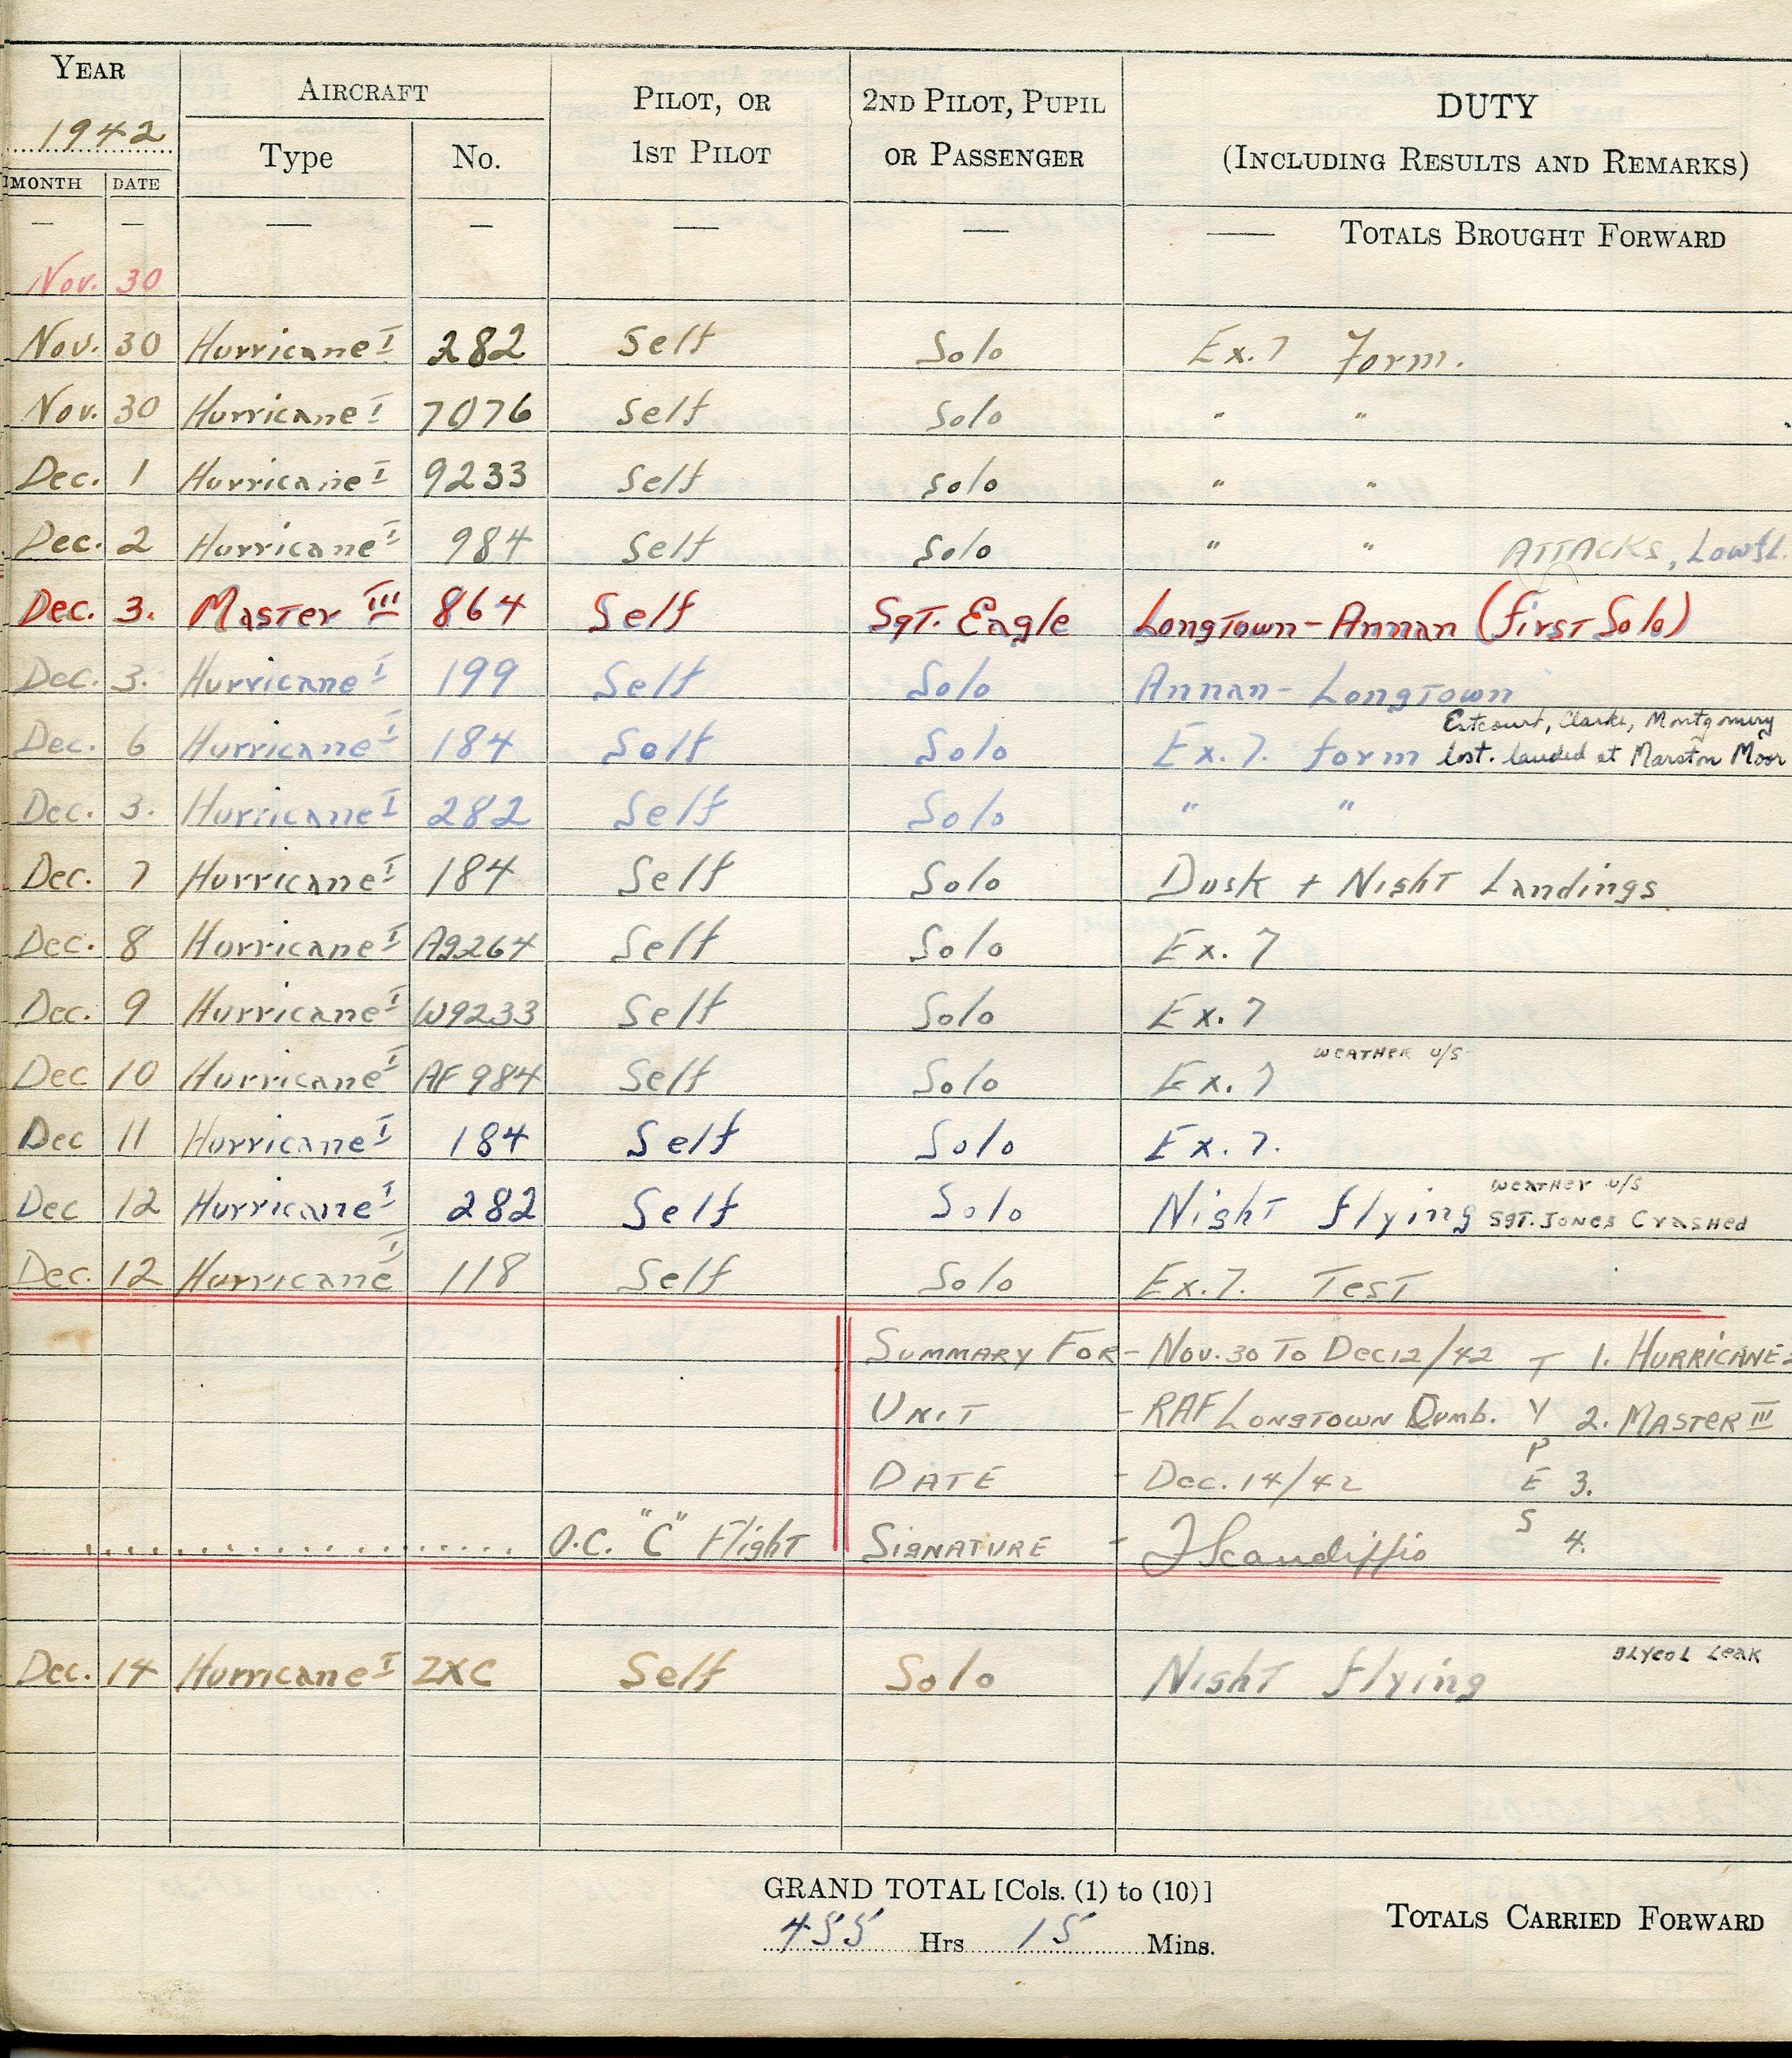 YEAR
AIRCRAFT
PILOT, OR
2ND PILOT, PUPIL
DUTY
1942
Type
No.
1ST PILOT
OR PASSENGER
(INCLUDING RESULTS AND REMARKS)
MONTH DATE
— — — — — — — TOTALS BROUGHT FORWARD
Nov. 30
Nov. 30 Hurricane I 282 Self Solo Ex. 7 Form.
Nov. 30 Hurricane I 7076 Self Solo " "
Dec. 1 Hurricane I 9233 Self Solo " "
Dec. 2 Hurricane I 984 Self Solo " " ATTACKS, Lowfl.
Dec. 3. Master III 864 Self Sgt. Eagle Longtown - Annan (First Solo)
Dec. 3. Hurricane I 199 Self Solo Annan - Longtown
Estcourt, Clarke, Montgomery
Dec. 6 Hurricane I 184 Self Solo Ex. 7. form lost. landed at Marston Moor
Dec. 3. Hurricane I 282 Self Solo " "
Dec. 7 Hurricane I 184 Self Solo Dusk + Night Landings
Dec. 8 Hurricane I AG264 Self Solo Ex. 7
Dec. 9 Hurricane I W9233 Self Solo Ex. 7
WEATHER U/S
Dec 10 Hurricane I AF984 Self Solo Ex. 7
Dec 11 Hurricane I 184 Self Solo Ex. 7.
WEATHER U/S
Dec 12 Hurricane I 282 Self Solo Night flying SGT. JONES Crashed
Dec. 12 Hurricane I 118 Self Solo Ex. 7. Test
SUMMARY FOR - Nov. 30 To Dec 12/42 T 1. HURRICANE
UNIT - RAF LONGTOWN Cumb. Y 2. MASTER III
P
DATE - Dec. 14/42 E 3.
S
O.C. "C" Flight SIGNATURE - JScandiffio 4.
GLYCOL Leak
Dec. 14 Hurricane I ZXC Self Solo Night flying
GRAND TOTAL [Cols. (1) to (10)]
455 Hrs 15 Mins.
TOTALS CARRIED FORWARD